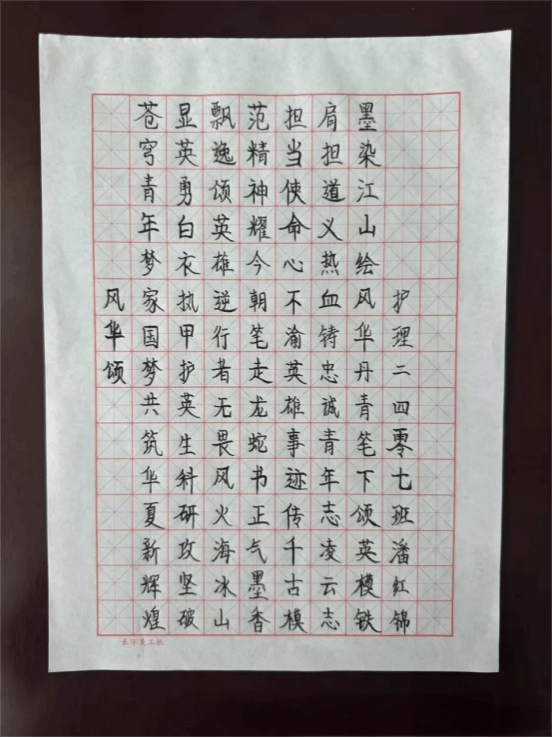 护理二四零七班潘红锦
墨染江山绘风华丹青笔下颂英模铁
肩担道义热血铸忠诚青年志凌云志
担当使命心不渝英雄事迹传千古模
范精神耀今朝笔走龙蛇书正气墨香
飘逸颂英雄逆行者无畏风火海冰山
显英勇白衣执甲护英生科研攻坚破
苍穹青年梦家国梦共筑华夏新辉煌
风华颂